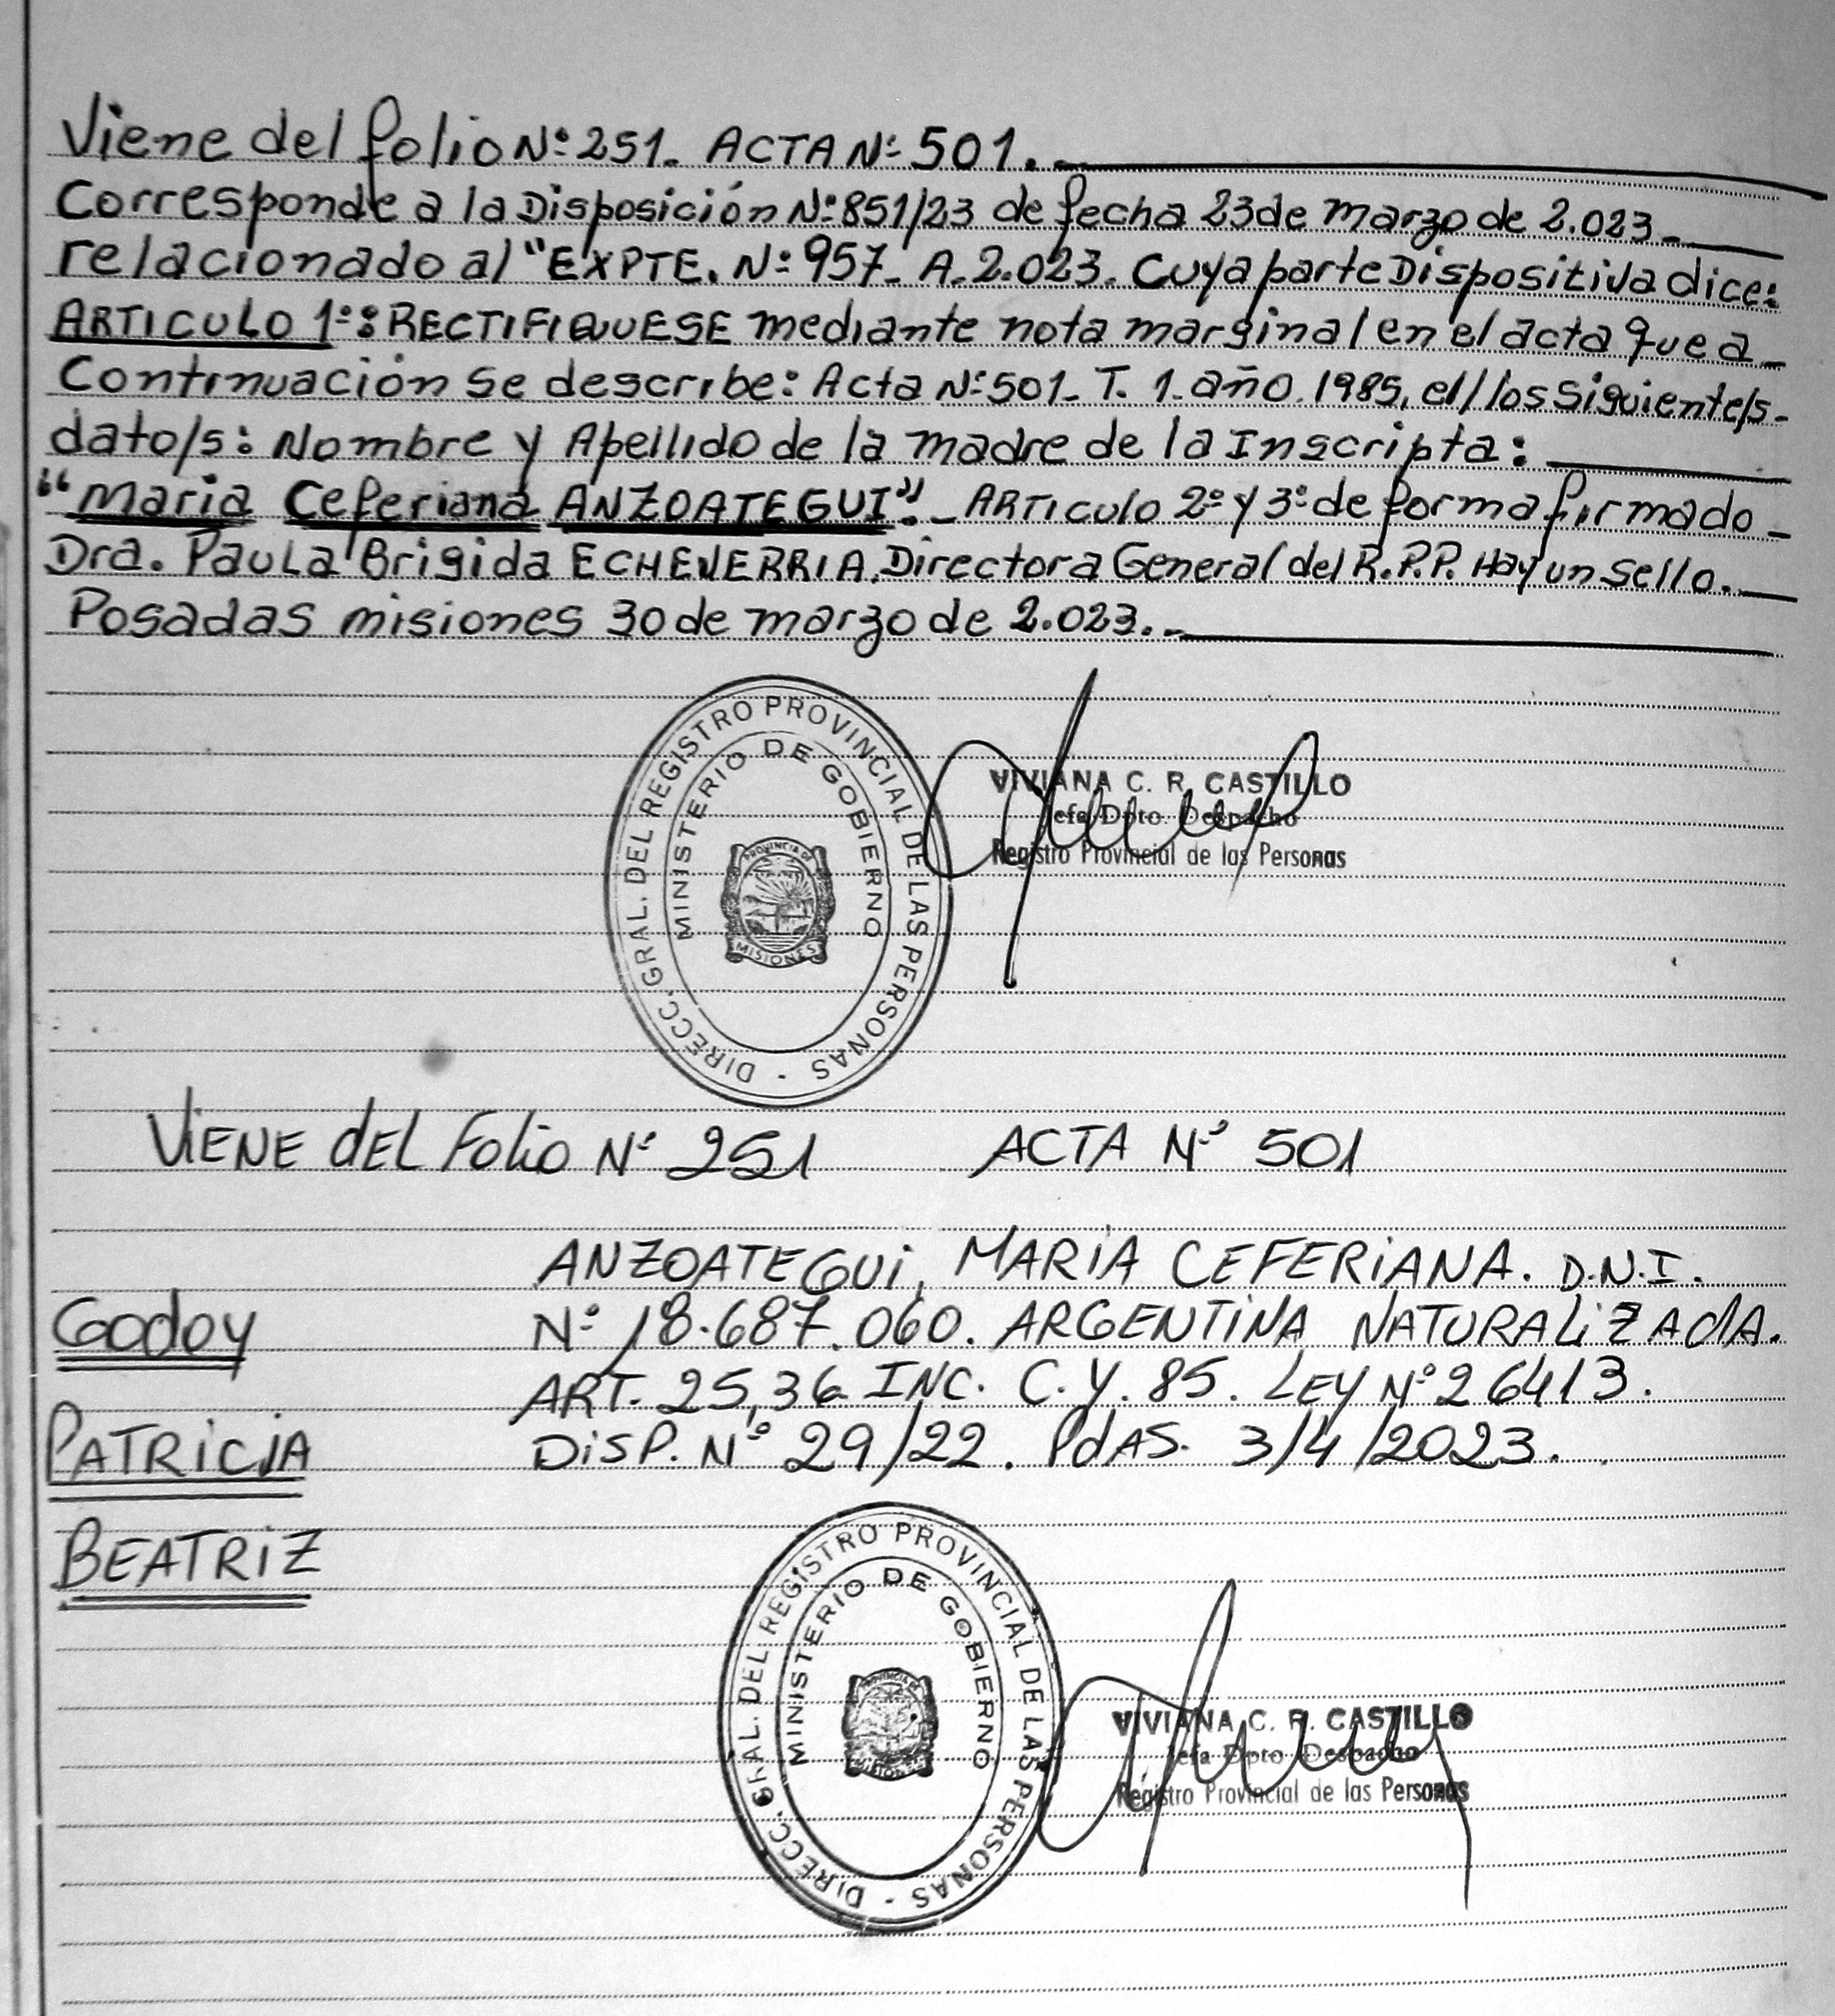 Viene del folio Nº 251. ACTA Nº 501.
Corresponde a la Disposición Nº 851/23 de fecha 23 de marzo de 2.023
relacionado al "EXPTE. Nº 957- A. 2.023. Cuya parte Dispositiva dice:
ARTICULO 1º: RECTIFIQUESE mediante nota marginal en el acta que a
Continuación se describe: Acta Nº 501- T. 1- año. 1985, el/los siguiente/s
dato/s: Nombre y Apellido de la madre de la Inscripta:
"Maria Ceferiana ANZOATEGUI". ARTICULO 2º y 3º de forma firmado
Dra. Paula Brigida ECHEVERRIA. Directora General del R.P.P. Hay un sello.
Posadas misiones 30 de marzo de 2.023.
DIRECC. GRAL. DEL REGISTRO PROVINCIAL DE LAS PERSONAS -
MINISTERIO DE GOBIERNO
PROVINCIA DE
MISIONES
VIVIANA C. R. CASTILLO
Jefa Dpto. Despacho
Registro Provincial de las Personas
VIENE dEL Folio Nº 251 ACTA Nº 501
ANZOATEGUi, MARiA CEFERiANA. D.N.I.
Godoy Nº 18.687.060. ARGENTINA NATURALiZAdA.
ART. 25,36 INC. C.Y. 85. LEY Nº 26413.
PATRICIA DiSP. Nº 29/22. PdAS. 3/4/2023.
BEATRiZ
DIRECC. GRAL. DEL REGISTRO PROVINCIAL DE LAS PERSONAS -
MINISTERIO DE GOBIERNO
PROVINCIA DE
MISIONES
VIVIANA C. R. CASTILLO
Jefa Dpto. Despacho
Registro Provincial de las Personas